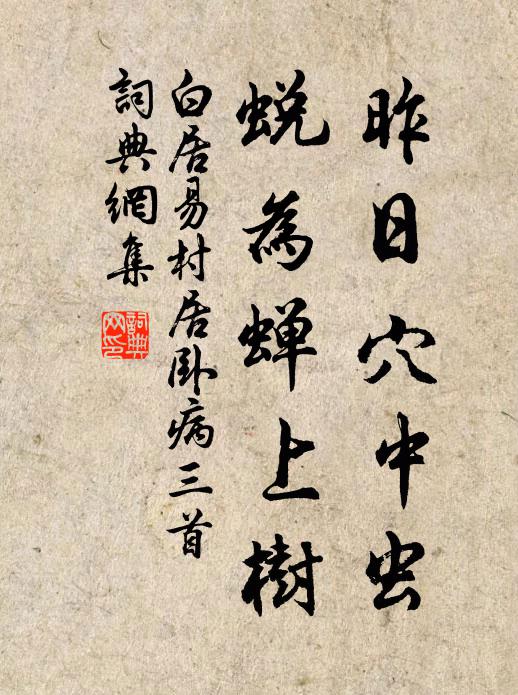 昨日穴中虫
蜕為蝉上樹
白居易村居卧病三首
詞典網集
詞典網印